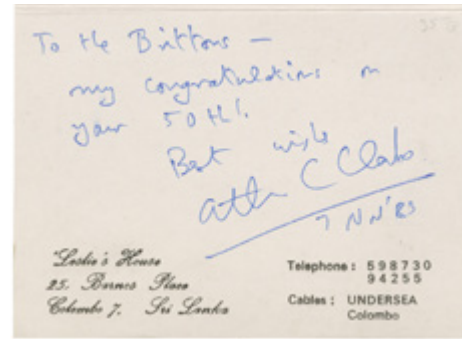 To the Brittons —
my congratulations on
your 50th!
Best wishes
Arthur C Clarke
7 Nov '83
"Leslie's House
25. Barnes Place
Colombo 7. Sri Lanka
Telephone : 598730
94255
Cables : UNDERSEA
Colombo